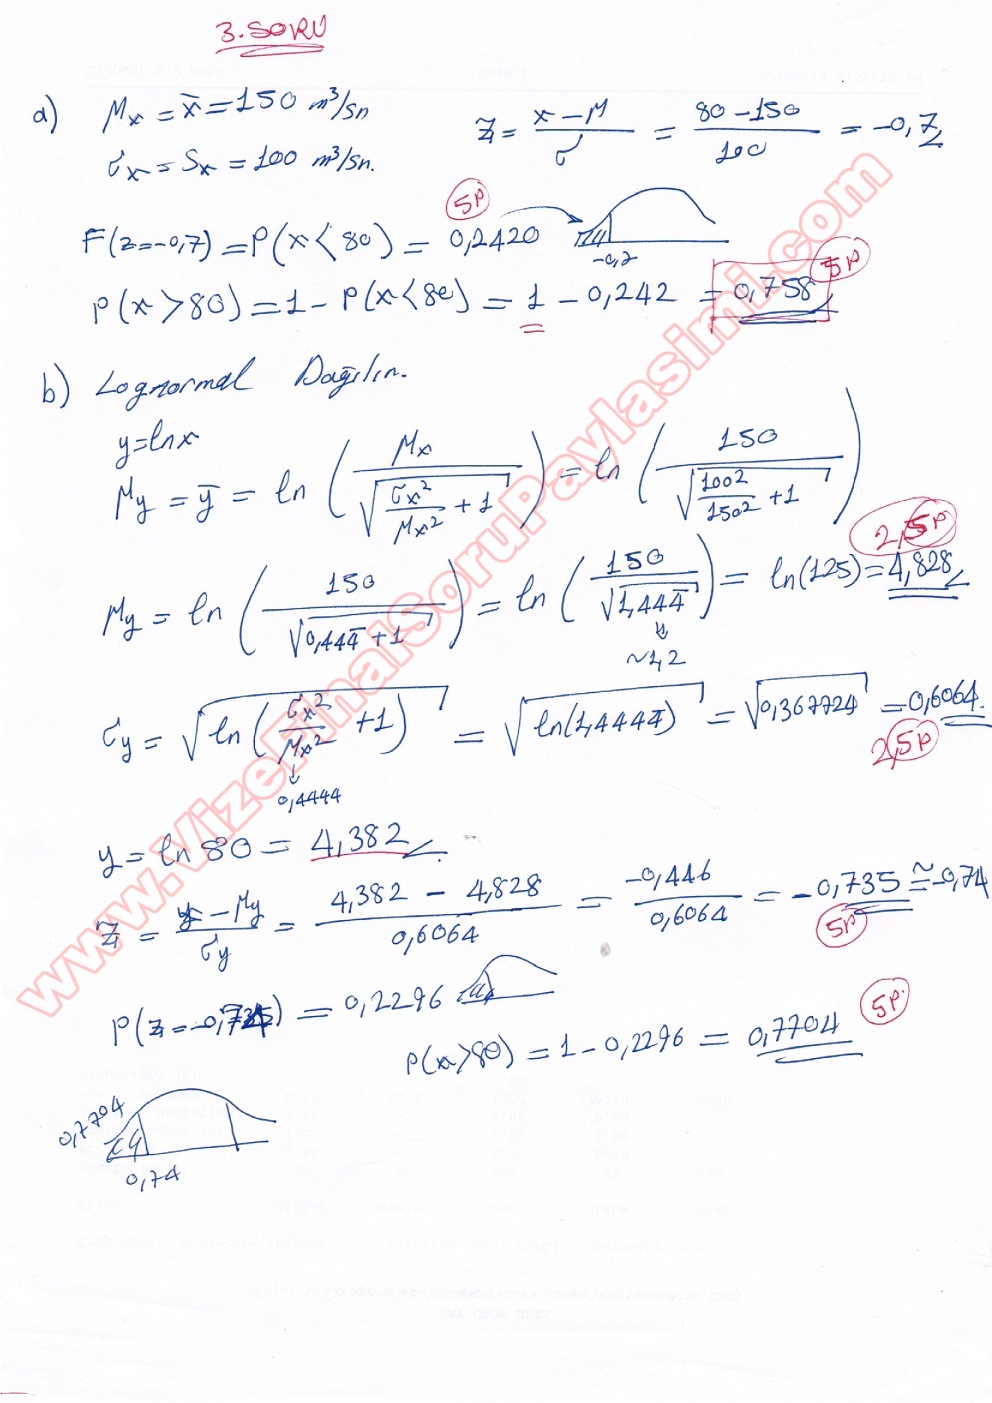 3. SORU
a) μx = x̄ = 150 m³/sn
σx = Sx = 100 m³/sn.
z = (x − μ)/σ = (80 − 150)/100 = −0,7
5p
F(z=−0,7) = P(x < 80) = 0,2420
−0,7
P(x > 80) = 1 − P(x < 80) = 1 − 0,242 = 0,758
5p
b) Lognormal Dağılım.
y = lnx
μy = ȳ = ln (μx / √(σx²/μx² + 1)) = ln (150 / √(100²/150² + 1))
2,5p
μy = ln (150 / √(0,444̄ + 1)) = ln (150 / √1,444̄) = ln(125) = 4,828
~1,2
σy = √ln(σx²/μx² + 1) = √ln(1,4444̄) = √0,367724 = 0,6064
0,4444
2,5p
y = ln 80 = 4,382
z = (y − μy)/σy = (4,382 − 4,828)/0,6064 = −0,446/0,6064 = −0,735 ≅ −0,74
5p
P(z = −0,74) = 0,2296
5p
P(x>80) = 1 − 0,2296 = 0,7704
0,7704
0,74
www.VizeFinalSoruPaylasimi.com